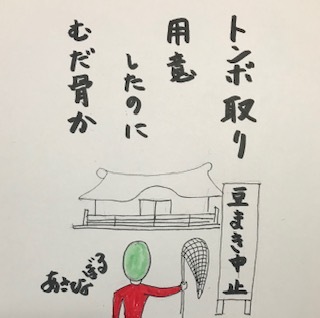 トンボ取り
用意
したのに
むだ骨か
豆まき中止
あさひなぼる